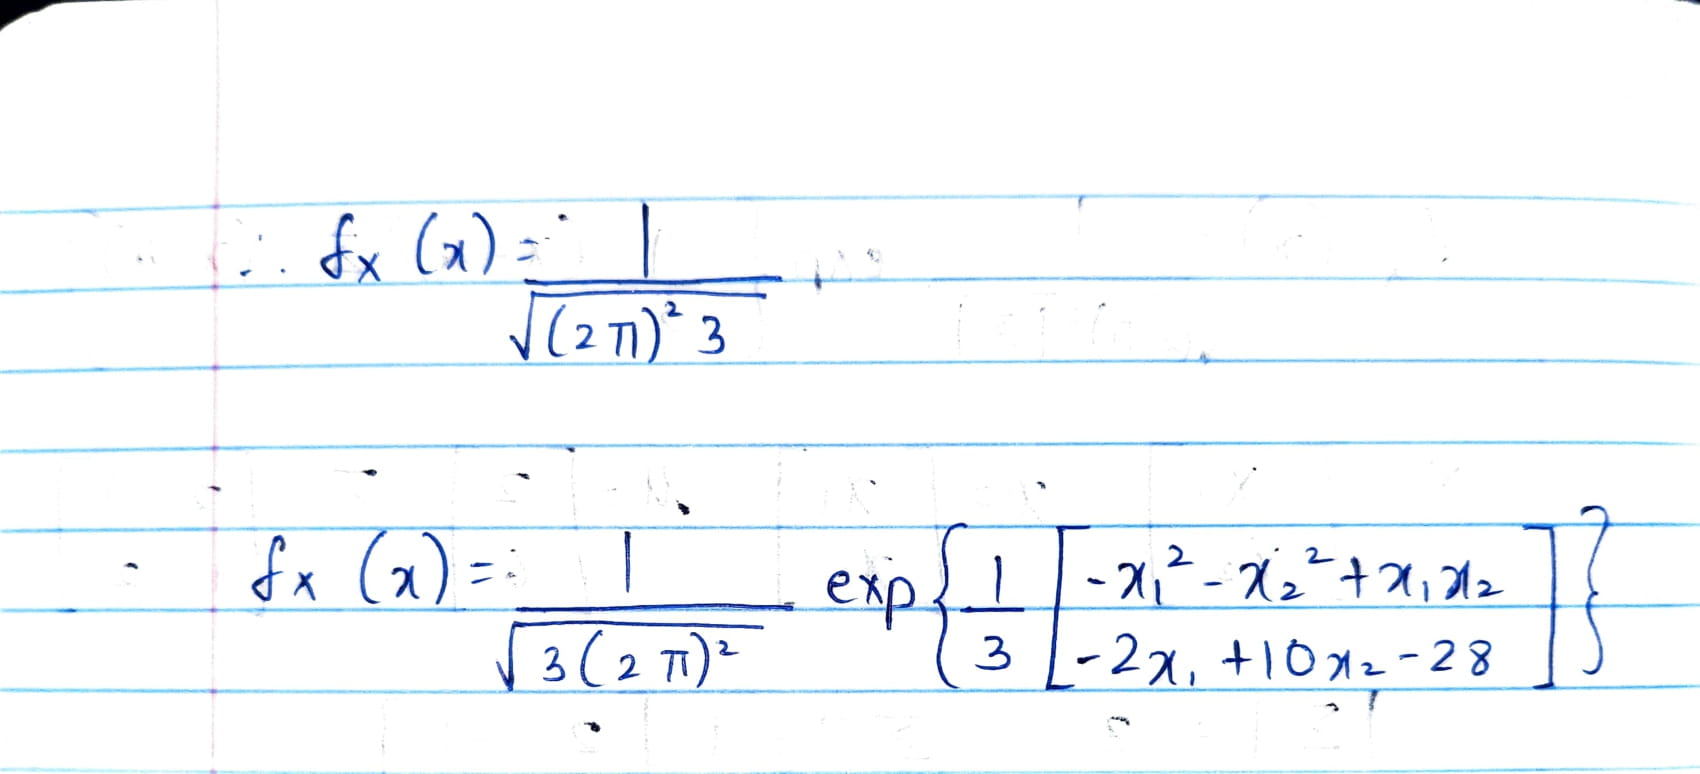 ∴ fx (x) = 1 / √((2π)² 3)
fx (x) = 1 / √(3(2π)²) exp{1/3 [-x₁² - x₂² + x₁x₂
-2x₁ + 10x₂ - 28]}